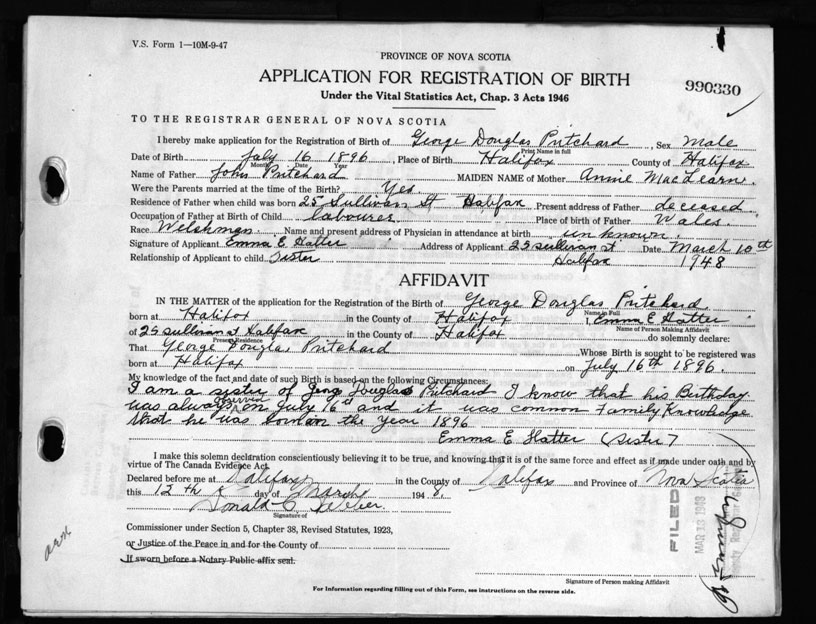 V.S. Form 1—10M-9-47
PROVINCE OF NOVA SCOTIA
APPLICATION FOR REGISTRATION OF BIRTH
990330
Under the Vital Statistics Act, Chap. 3 Acts 1946
TO THE REGISTRAR GENERAL OF NOVA SCOTIA
I hereby make application for the Registration of Birth of George Douglas Pritchard, Sex Male
Print Name in full
Date of Birth July 16 1896, Place of Birth Halifax County of Halifax
Month Date Year
Name of Father John Pritchard MAIDEN NAME of Mother Annie MacLearn.
Were the Parents married at the time of the Birth? Yes
Residence of Father when child was born 25 Sullivan St Halifax Present address of Father deceased
Occupation of Father at Birth of Child labourer Place of birth of Father Wales.
Race Welshman. Name and present address of Physician in attendance at birth unknown.
Signature of Applicant Emma E Hatter Address of Applicant 25 Sullivan St Date March 10th
Relationship of Applicant to child Sister Halifax 1948
AFFIDAVIT
IN THE MATTER of the application for the Registration of the Birth of George Douglas Pritchard
Name in Full
born at Halifax in the County of Halifax I, Emma E Hatter
Name of Person Making Affidavit
of 25 Sullivan St Halifax in the County of Halifax do solemnly declare:
Present Residence
That George Douglas Pritchard Whose Birth is sought to be registered was
born at Halifax on July 16th 1896.
My knowledge of the fact and date of such Birth is based on the following Circumstances:
I am a sister of George Douglas Pritchard I know that his Birthday
was always observed on July 16th and it was common Family Knowledge
that he was born on the year 1896
Emma E Hatter (Sister)
I make this solemn declaration conscientiously believing it to be true, and knowing that it is of the same force and effect as if made under oath and by
virtue of The Canada Evidence Act.
Declared before me at Halifax in the County of Halifax and Province of Nova Scotia
this 12th day of March 1948.
Donald
Signature of
Commissioner under Section 5, Chapter 38, Revised Statutes, 1923,
or Justice of the Peace in and for the County of
If sworn before a Notary Public affix seal.
Signature of Person making Affidavit
For Information regarding filling out of this Form, see instructions on the reverse side.
FILED
MAR 13 1948
arm